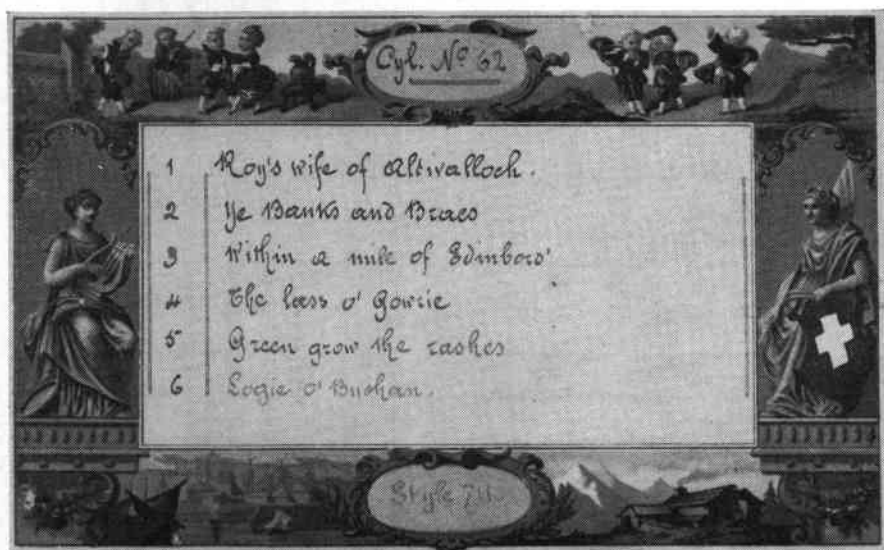 Cyl. No 62
1 Roy's wife of Altivalloch.
2 Ye Banks and Braes
3 Within a mile of Edimboro'
4 The lass o' Gowrie
5 Green grow the rashes
6 Logie o' Buchan.
Style